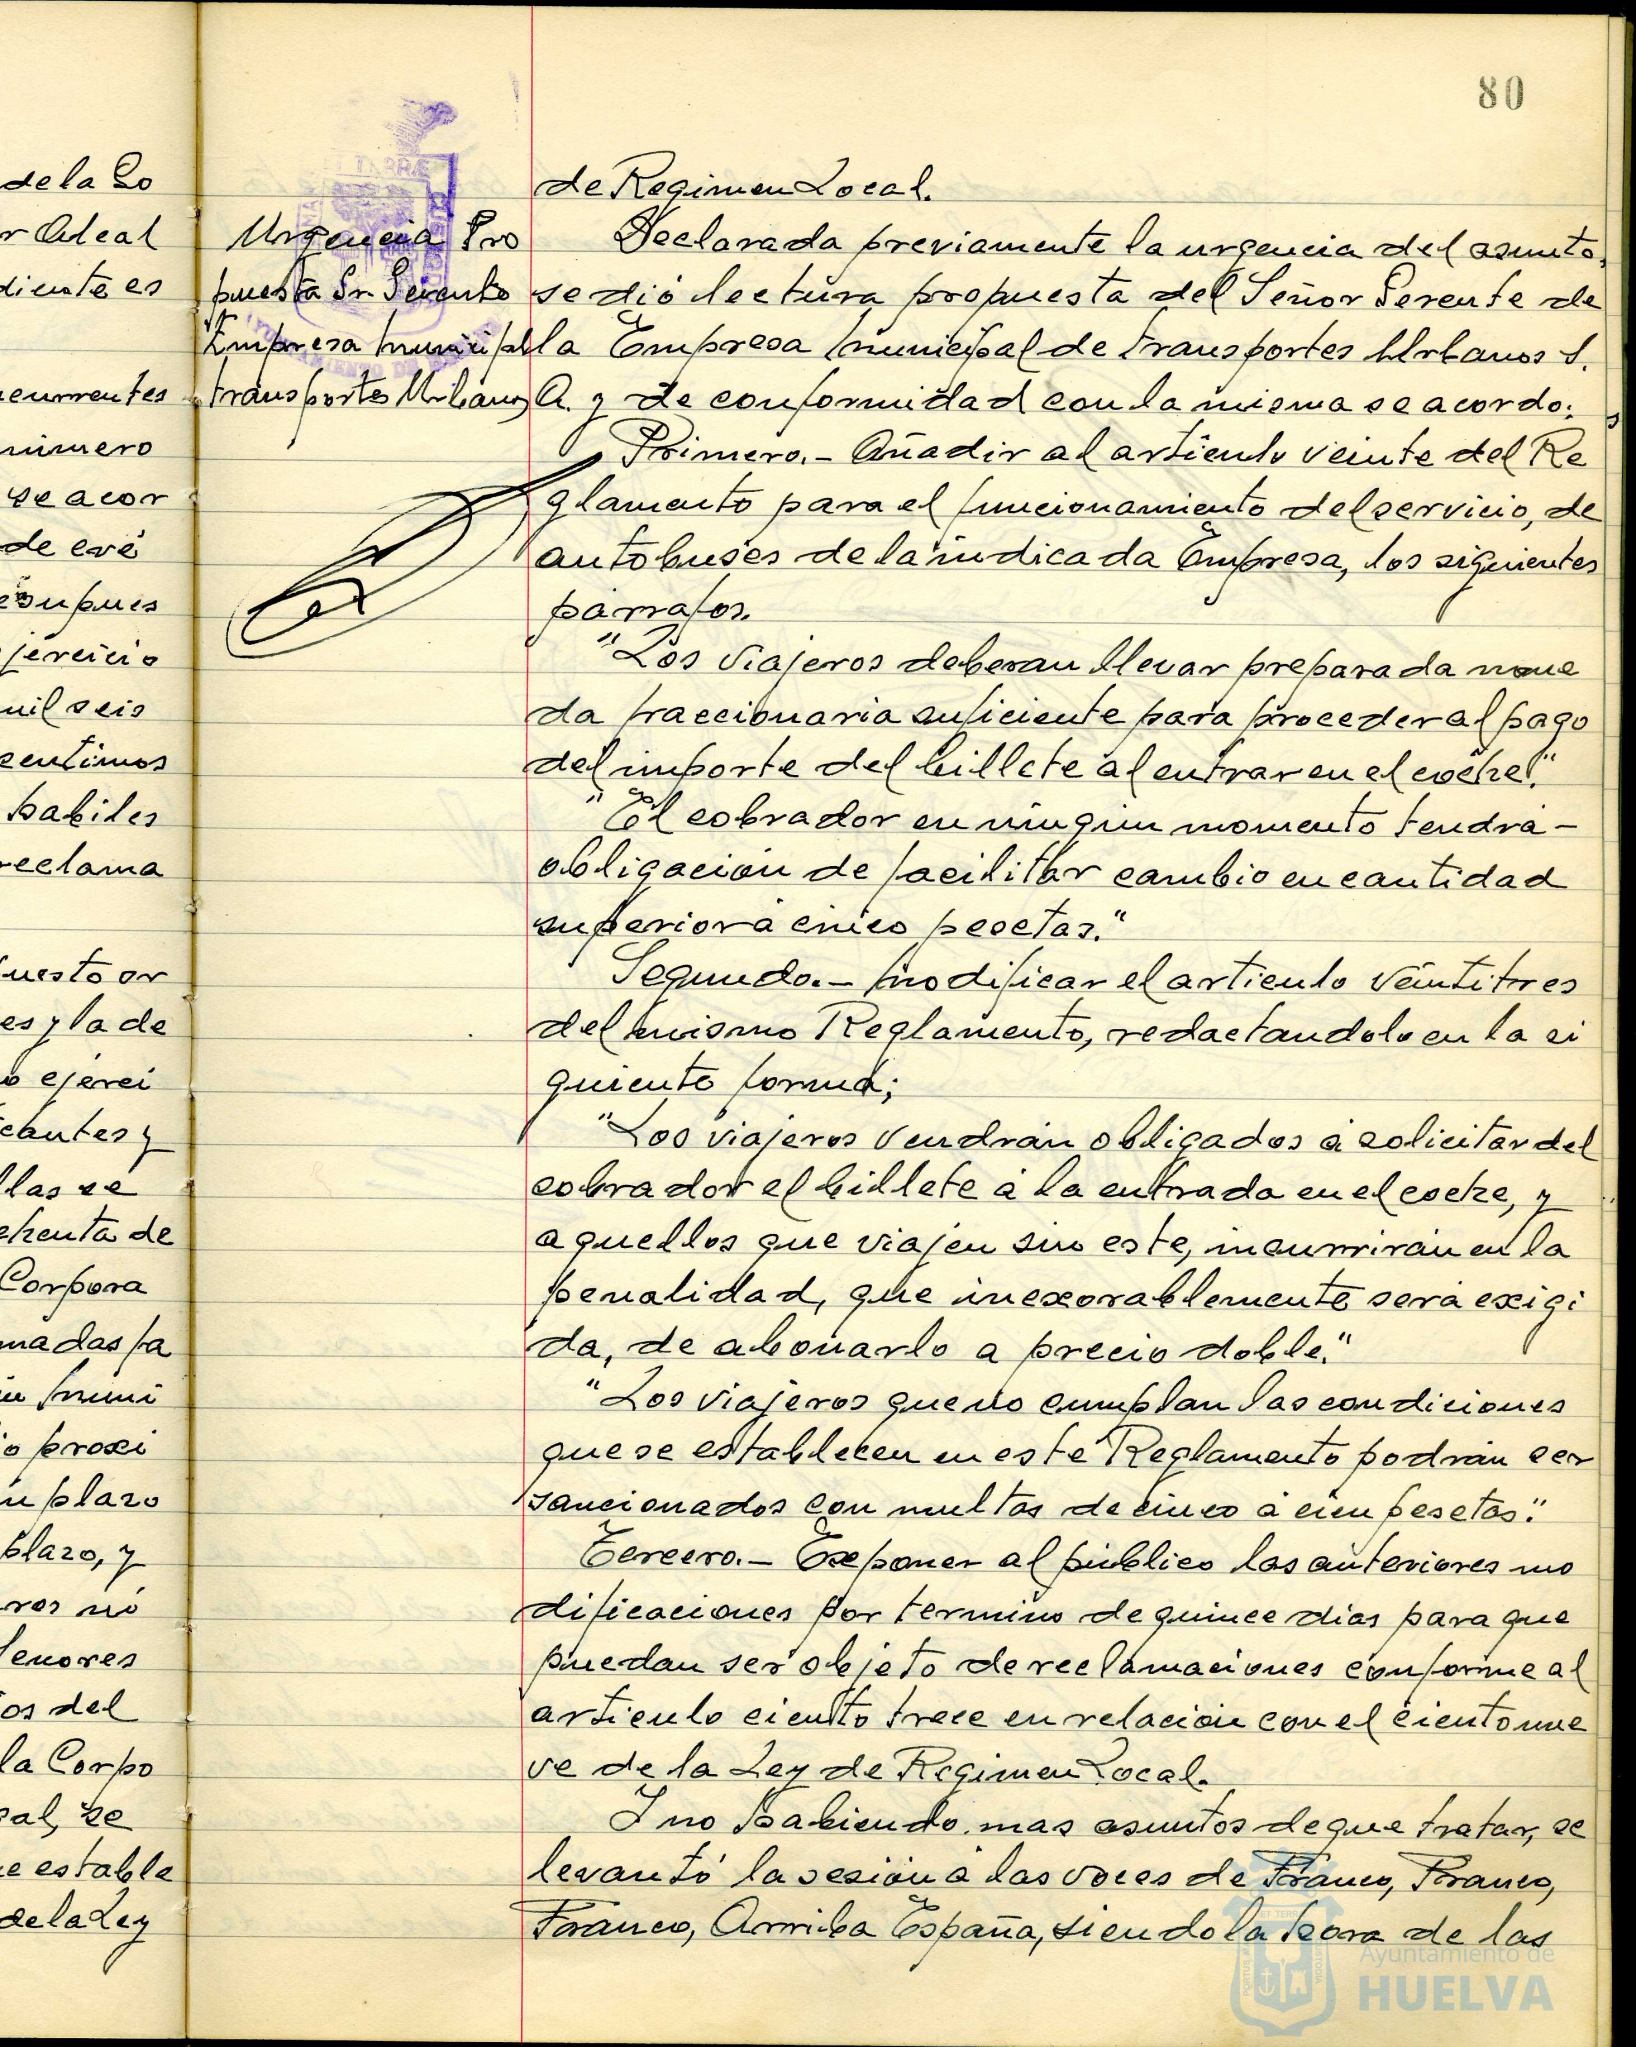 80
de la Co
r Alcal
diente es
currentes
numero
se acor
de eré
esupues
jercicio
mil seis
centimos
habiles
reclama
uesto or
es y la de
o ejerci
cantes y
llas se
chenta de
Corpora
madas fa
muni
o proxi
n plazo
plazo, y
ros nú
Señores
os del
la Corpo
cal, se
e estable
de la Ley
Urgencia Pro
puesta Sr. Gerente
Empresa Municipal
transportes Urbanos
de Regimen Local.
Declarada previamente la urgencia del asunto,
se dió lectura propuesta del Señor Gerente de
la Empresa Municipal de transportes Urbanos S.
A. y de conformidad con la misma se acordo:
Primero.- Añadir al articulo veinte del Re
glamento para el funcionamiento del servicio, de
autobuses de la indicada Empresa, los siguientes
parrafos.
"Los viajeros deberan llevar preparada mone
da fraccionaria suficiente para proceder al pago
del importe del billete al entrar en el coche."
"El cobrador en ningun momento tendrá -
obligación de facilitar cambio en cantidad
superior a cinco pesetas."
Segundo.- Modificar el articulo veintitres
del mismo Reglamento, redactandolo en la si
guiente forma;
"Los viajeros vendrán obligados a solicitar del
cobrador el billete a la entrada en el coche, y
aquellos que viajen sin este, incurrirán en la
penalidad, que inexorablemente será exigi
da, de abonarlo a precio doble."
"Los viajeros que no cumplan las condiciones
que se establecen en este Reglamento podrán ser
sancionados con multas de cinco a cien pesetas."
Tercero.- Exponer al público las anteriores mo
dificaciones por termino de quince dias para que
puedan ser objeto de reclamaciones conforme al
articulo ciento trece en relación con el ciento nue
ve de la Ley de Regimen Local.
Y no habiendo mas asuntos de que tratar, se
levantó la sesión a las voces de Franco, Franco,
Franco, Arriba España, siendo la hora de las
Ayuntamiento de
HUELVA